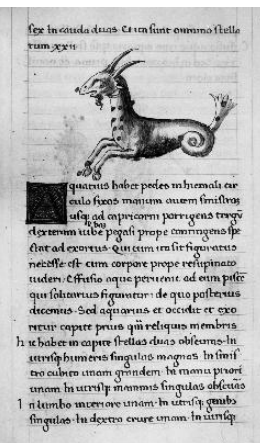 sex in cauda duas. Et ita sunt omnino stella
rum xxii
Aquarius habet pedes in hiemali cir
culo fixos manum autem sinistram
usq; ad capricorni porrigens tergū
dexteram iubę pegasi prope contingens spe
ctat ad exortus. Qui cum ita sit figuratus
necesse est cum corpore prope resupinato
uideri. Effusio aquę peruenit ad eum piscē
qui solitarius figuratur: de quo posterius
dicemus. Sed aquarius et occidit et exo
ritur capite prius qm̄ reliquis membris
hic habet in capite stellas duas obscuras. In
utrisq; humeris singulas magnas. In sinis
tro cubito unam grandem. In manu priori
unam. In utrisq; mammis singulas obscuras
In lumbo interiore unam. In utrisq; genibꝰ
singulas. In dextro crure unam. In utrisq;